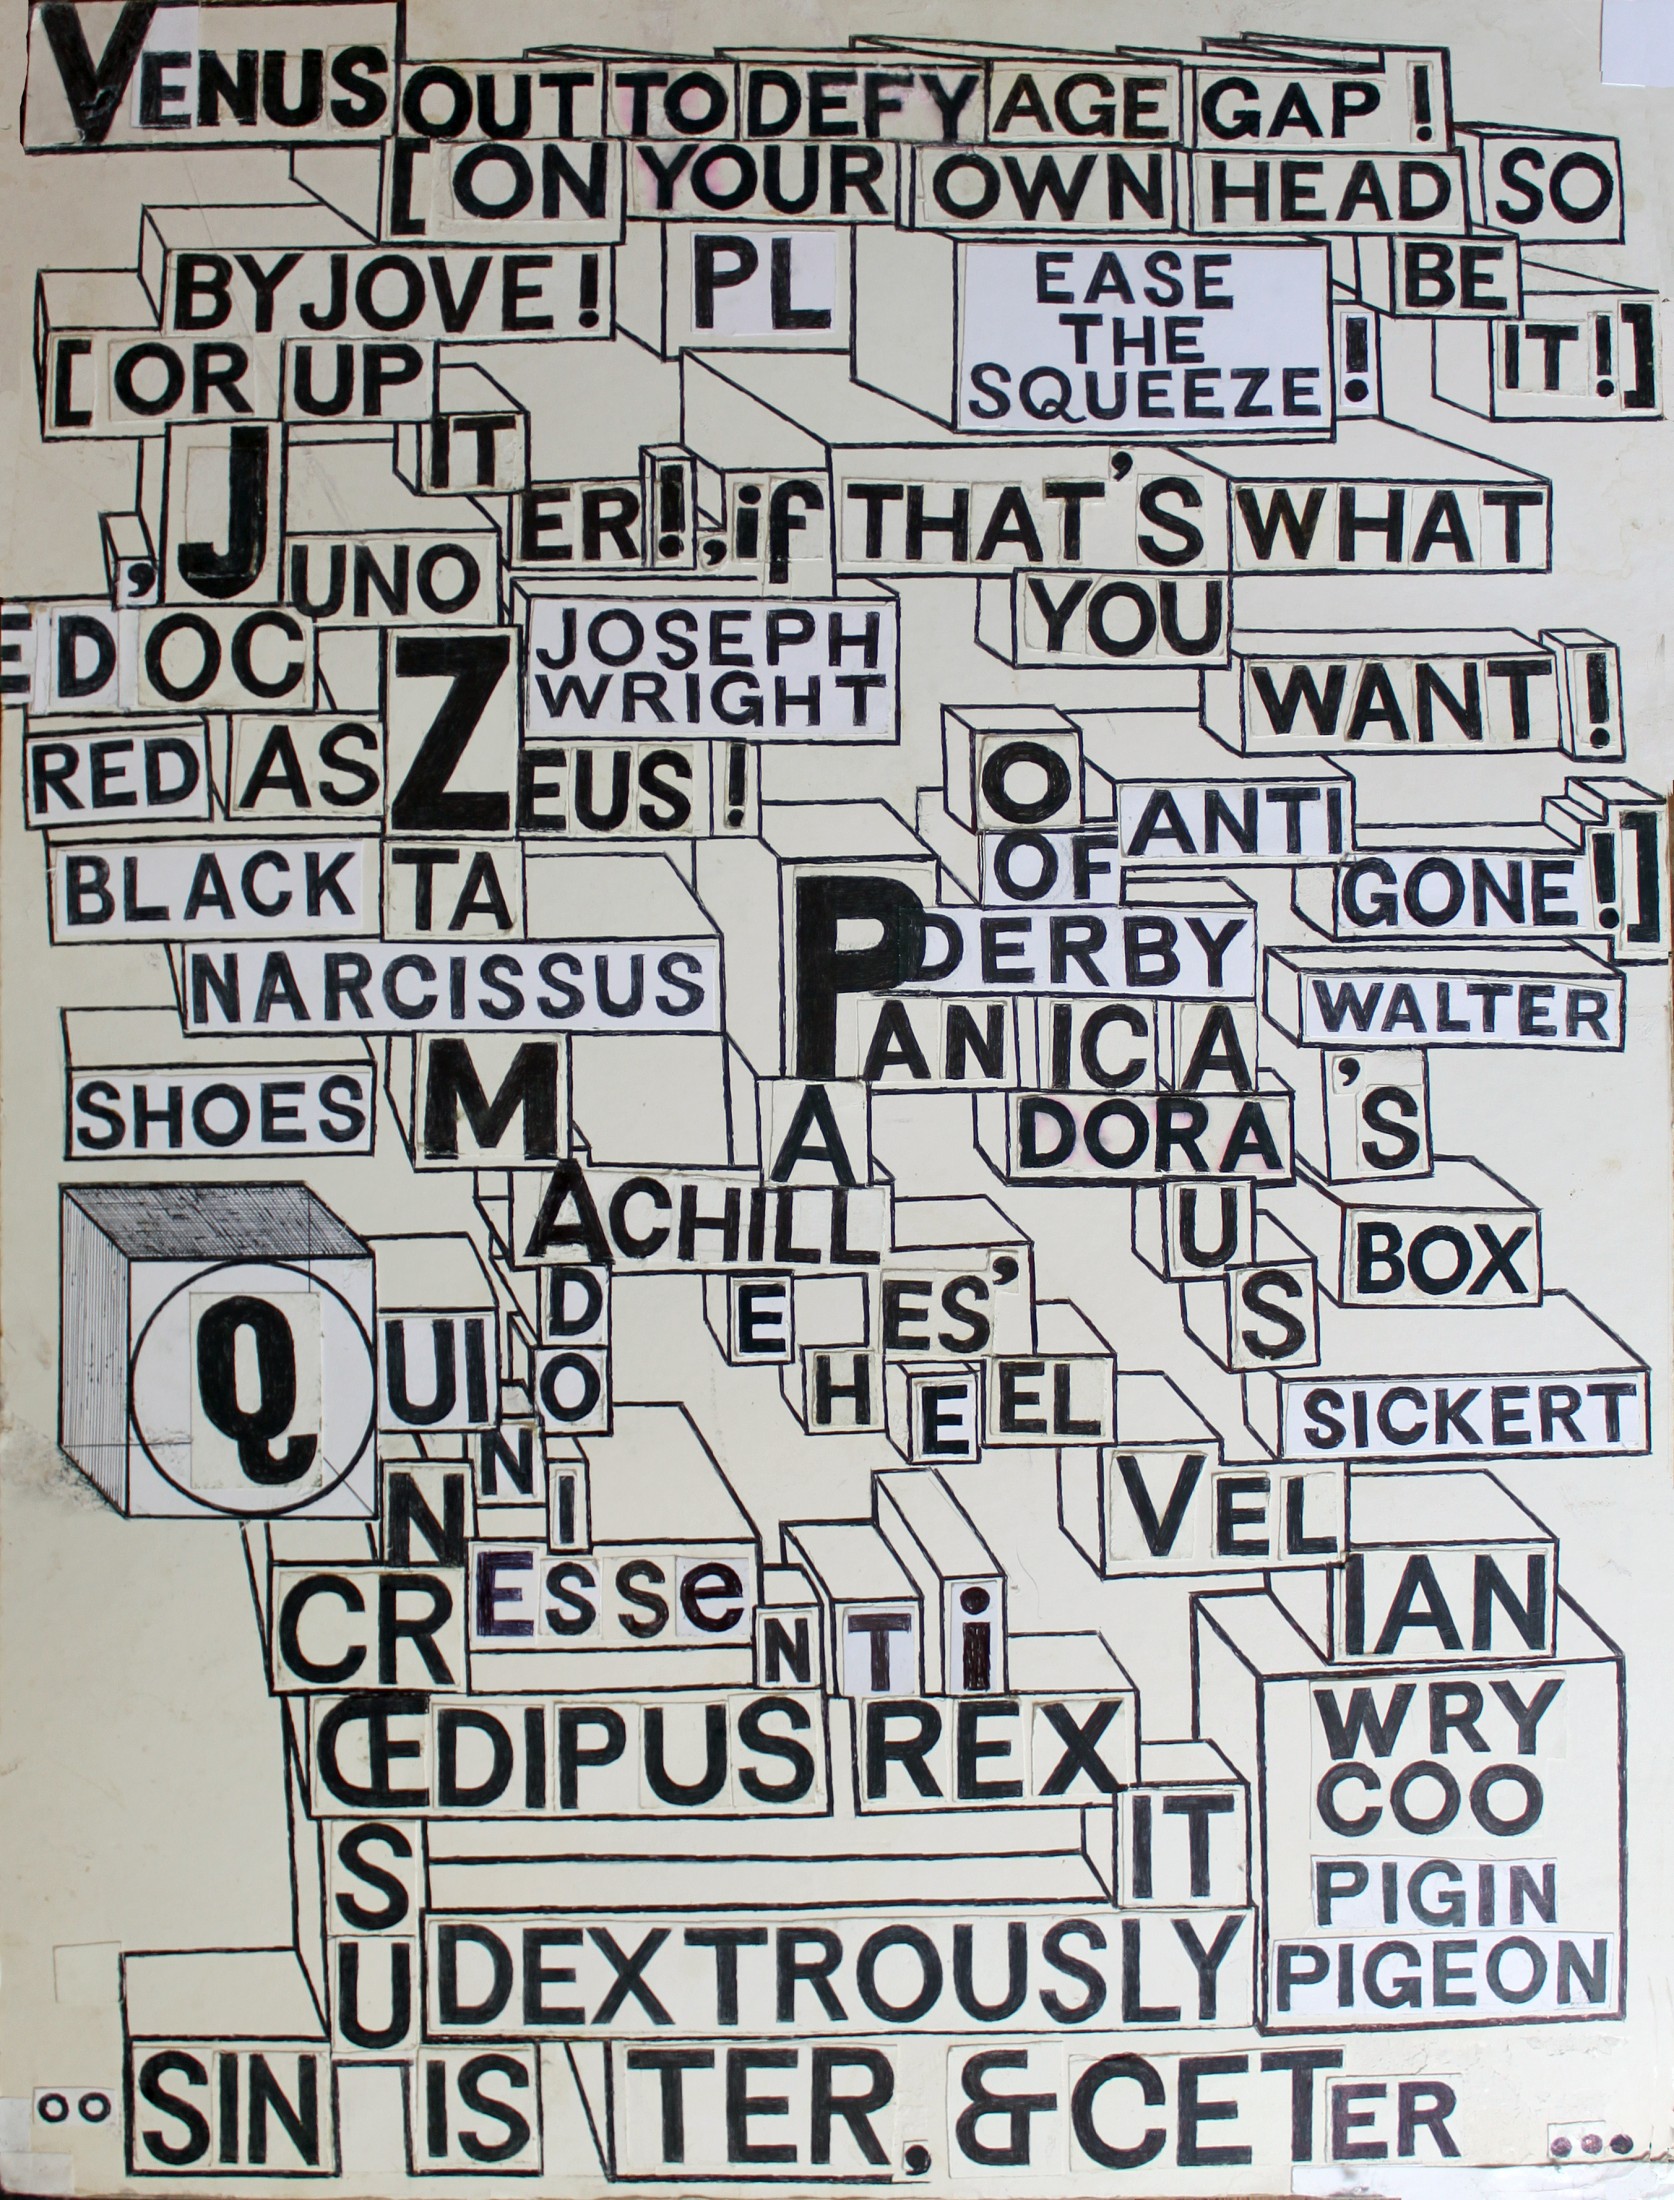 VENUS OUT TO DEFY AGE GAP!
[ON YOUR OWN HEAD SO
BE
IT!]
BY JOVE! PL
EASE
THE
SQUEEZE!
[OR UP
IT
ER!, if THAT'S WHAT
YOU
WANT!
, JUNO
ED OC
JOSEPH
WRIGHT
RED AS ZEUS!
O
OF
ANTI
GONE!]
BLACK TA
DERBY
NARCISSUS
PANIC A
WALTER
'S
SHOES
M
A
DORA
ACHILL
U
S
BOX
E ES'
H E EL
SICKERT
D
O
Q UI
N
N
I
VEL
IAN
CR
EssenTi
ŒDIPUS REX
IT
WRY
COO
PIGIN
PIGEON
S
U
DEXTROUSLY
oo SIN IS TER, & CETER ...